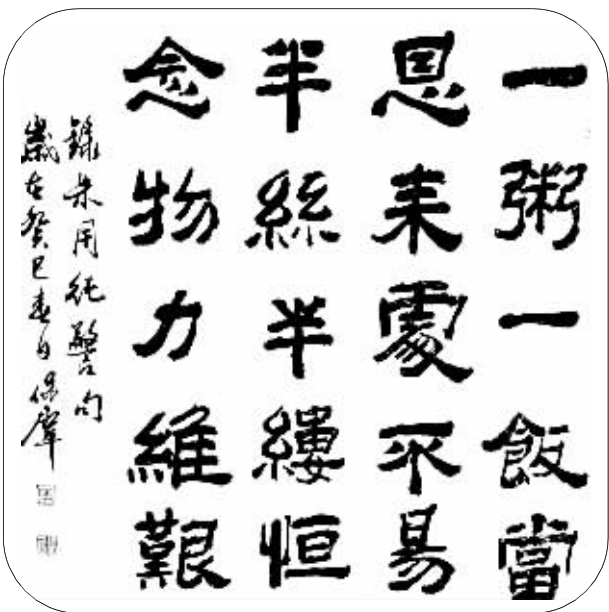 一粥一飯當
思来處不易
半絲半縷恒
念物力維艱
錄朱用純警句
歲在癸巳春日保羣